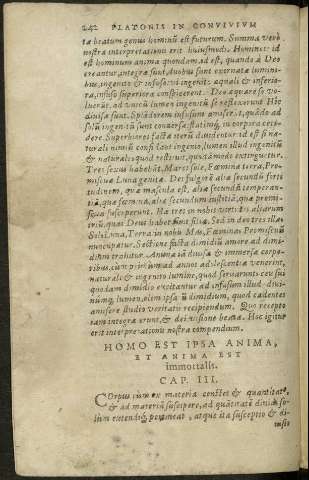 242 PLATONIS IN CONVIVIVM
tæ beatum genus hominū est futurum. Summa verò
nostræ interpretationis erit huiusmodi. Homines: id
est hominum animæ quondam, id est, quando à Deo
creantur, integræ sunt, duobus sunt exornatæ luminibus,
ingenito & infuso: vt ingenito æqualia & inferiora,
infuso superiora conspicerent. Deo æquare se voluerūt,
ad vnicū lumen ingenitū se reflexerunt Hic
diuisæ sunt. Splēdorem infusum amiserūt, quādo ad
solū ingenitū sunt conuersæ, statimq́; in corpora cecidere.
Superbiores factæ iterū diuidentur id est si naturali
nimiū confidat ingenio, lumen illud ingenitū
& naturale quod restitit, quodāmodo extinguetur.
Tres sexus habebāt, Mares sole, Fœminæ terra, Promiscuæ
Luna genitæ. Dei fulgorē aliæ secundū fortitudinem,
quæ mascula est, aliæ secundū temperantiā,
quæ fœmina, aliæ secundum iustitiā, quæ promiscua
susceperunt. Hæ tres in nobis virtutes aliarum
triū, quas Deus habet sunt filiæ. Sed in deo tres illæ
Sol, Luna, Terra in nobis Mas, Fœmina, Promiscuū
nuncupatur. Sectione facta dimidiū amore ad dimidium
trahitur. Animæ iā diuisæ & immersæ corporibus,
cum primum ad annos adolescentiæ venerint,
naturali & ingenito lumine, quod seruarunt ceu sui
quodam dimidio excitantur ad infusum illud diuinumq́;
lumen, olim ipsarū dimidium, quod cadentes
amisere studio veritatis recipiendum. Quo recepto
iam integræ erunt, & dei visione beatæ. Hoc igitur
erit interpretationis nostræ compendium.
HOMO EST IPSA ANIMA,
ET ANIMA EST
immortalis.
CAP. III.
Corpus cum ex materia constet & quantitate,
& ad materiā suscipere, ad quātitatē diuidi solum
extendiq́; pertineat, atque ita susceptio & diuisio